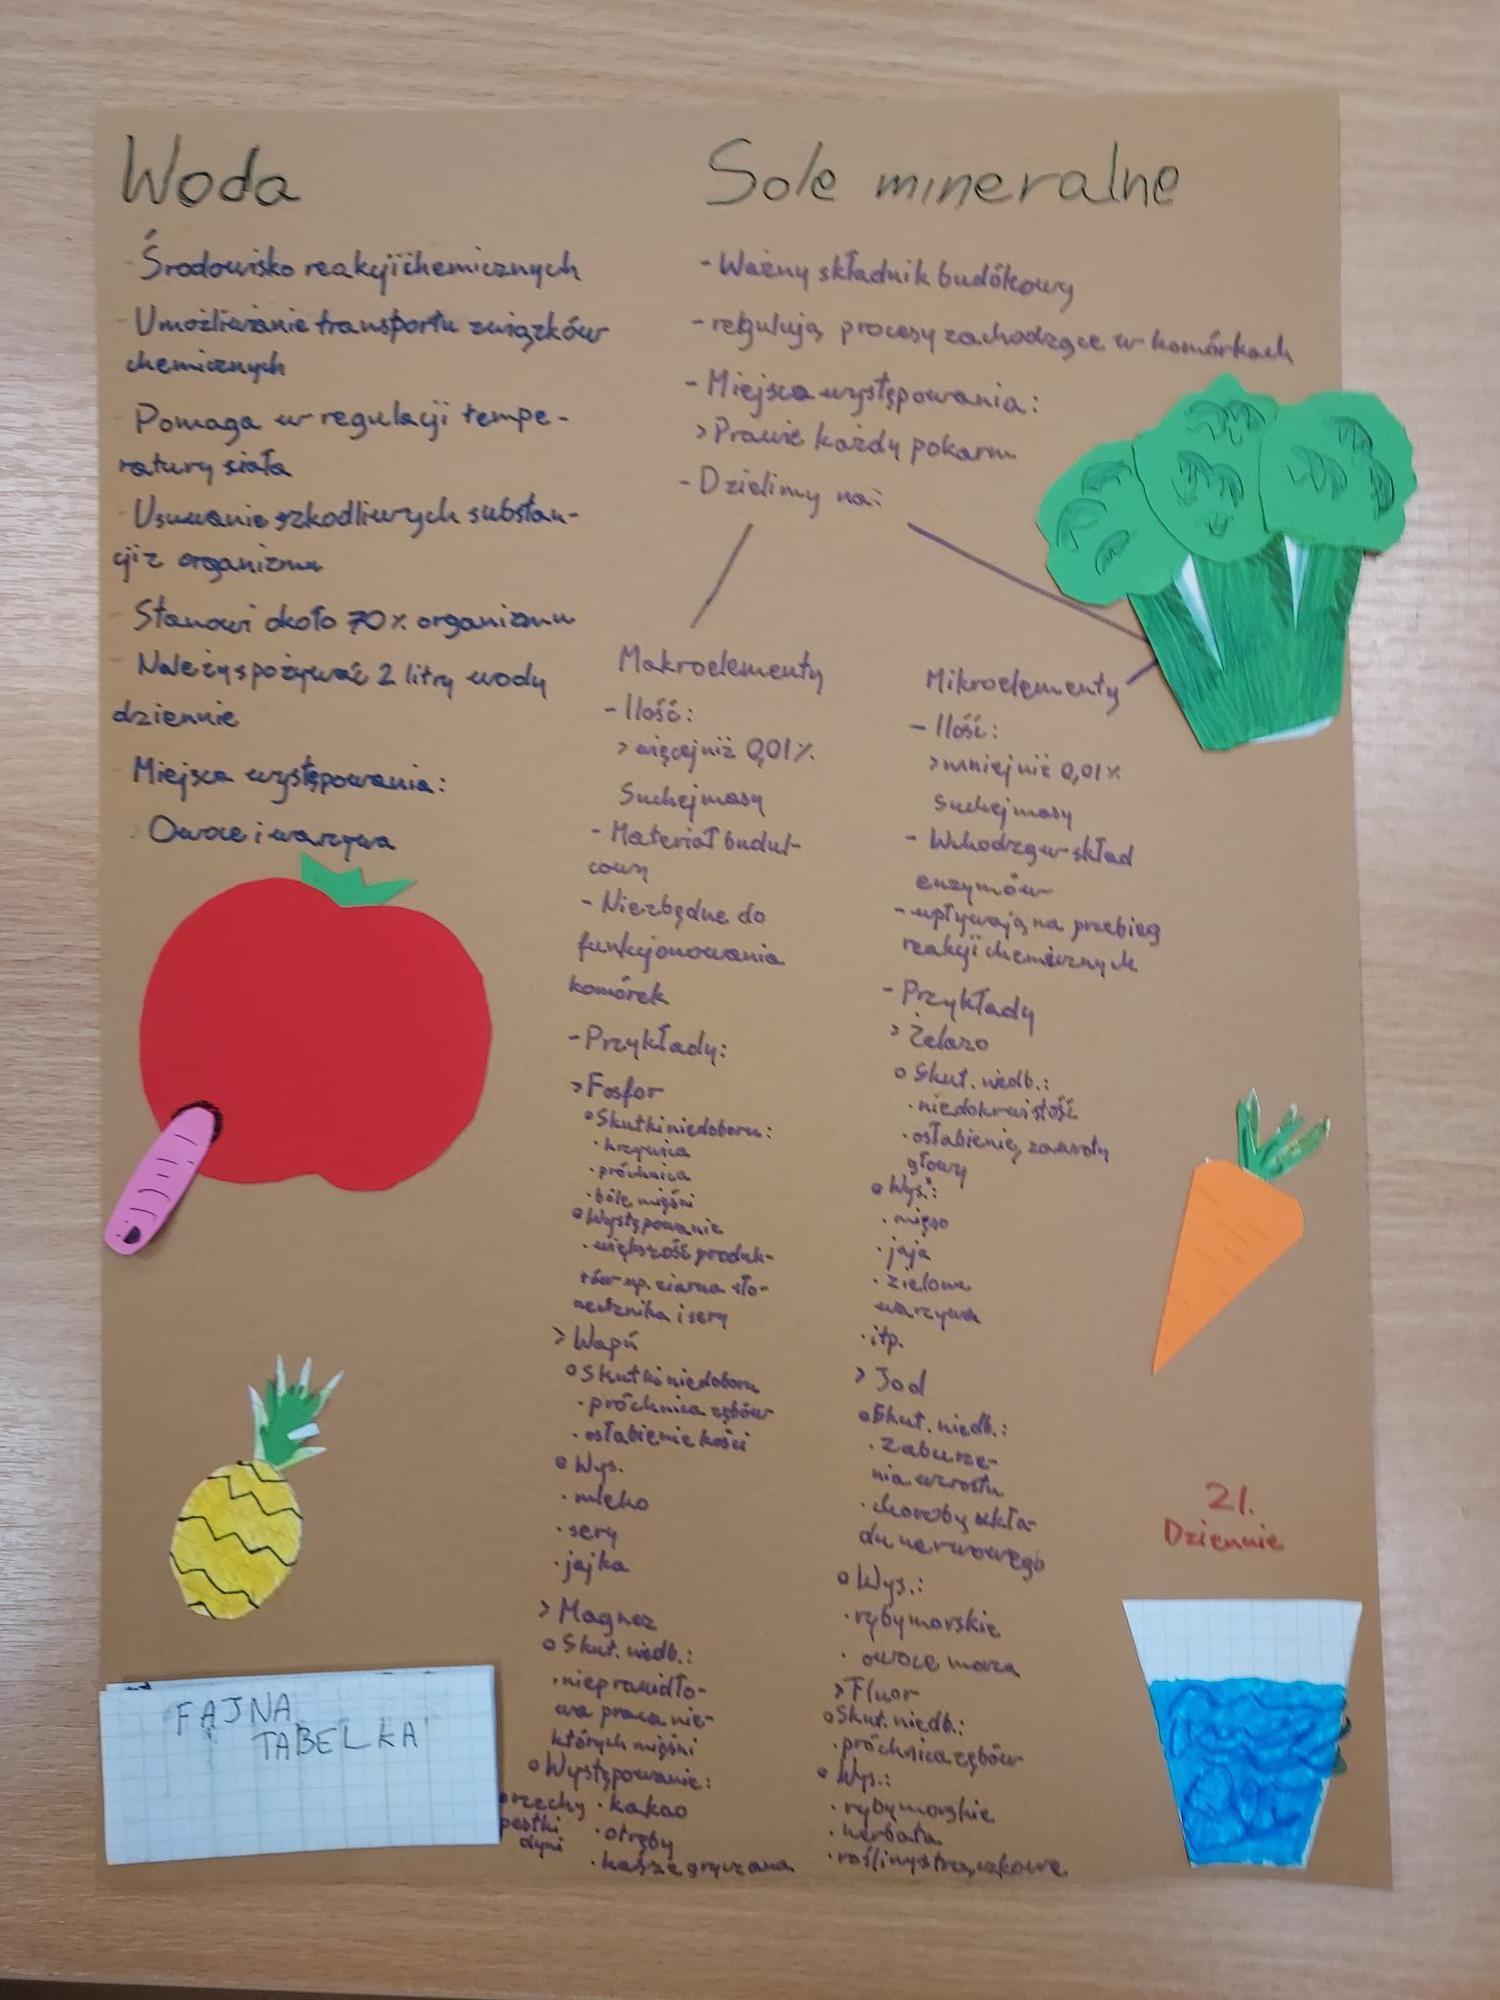 Woda
- Środowisko reakcji chemicznych
- Umożliwianie transportu związków
chemicznych
- Pomaga w regulacji tempe-
ratury siała
- Usuwanie szkodliwych substan-
cji z organizmu
- Stanowi około 70% organizmu
- Należy spożywać 2 litry wody
dziennie
- Miejsca występowania:
> Owoce i warzywa
FAJNA
TABELKA
Sole mineralne
- Ważny składnik budókowy
- regulują procesy zachodzące w komórkach
- Miejsca występowania:
> Prawie każdy pokarm
- Dzielimy na:
Makroelementy
- Ilość:
> więcej niż 0,01%
Suchej masy
- Materiał budul-
cowy
- Niezbędne do
funkcjonowania
komórek
- Przykłady:
> Fosfor
o Skutki niedoboru:
· krzywica
· próchnica
· bóle mięśni
o Występowanie
· większość produk-
tów np. ziarna sło-
necznika i sery
> Wapń
o Skutki niedoboru
· próchnica zębów
· osłabienie kości
o Wys.
· mleko
· sery
· jajka
> Magnez
o Skut. niedb.:
· nieprawidło-
wa praca nie-
których mięśni
o Występowanie:
orzechy · kakao
pestki · otręby
dyni
· kasza gryczana
Mikroelementy
- Ilość:
> mniej niż 0,01%
Suchej masy
- Wchodzą w skład
enzymów
- wpływają na przebieg
reakcji chemicznych
- Przykłady
> Żelazo
o Skut. niedb.:
· niedokrwistość
· osłabienie, zawroty
głowy
o Wys.:
· mięso
· jaja
· zielone
warzywa
· itp.
> Jod
o Skut. niedb.:
· zaburze-
nia wzrostu
· choroby ukła-
du nerwowego
o Wys.:
· ryby morskie
· owoce morza
> Fluor
o Skut. niedb.:
· próchnica zębów
o Wys.:
· ryby morskie
· herbata
· rośliny strączkowe
2l.
Dziennie